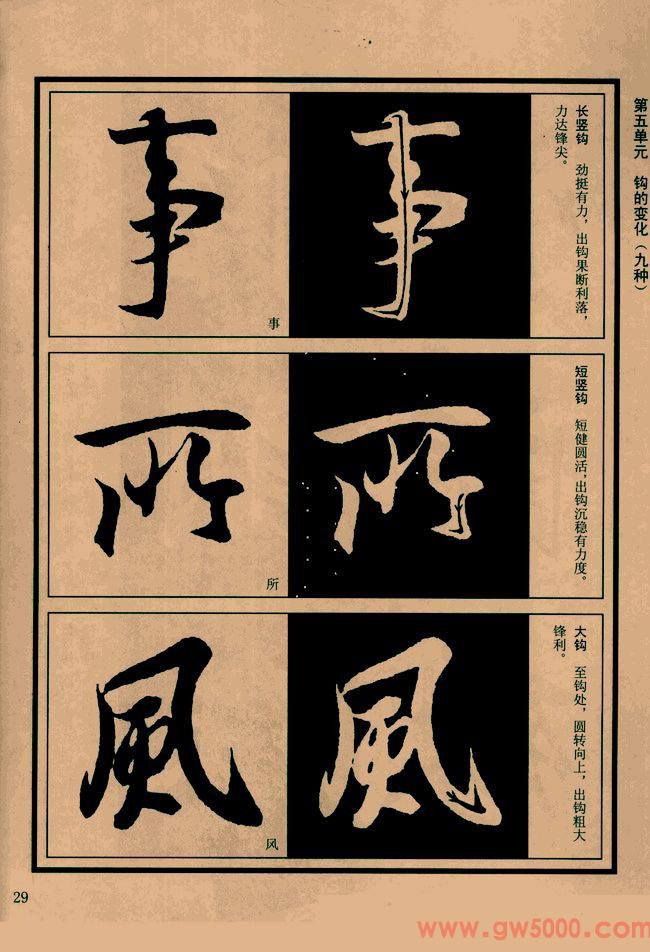 第五单元 钩的变化（九种）
长竖钩 劲挺有力，出钩果断利落，
力达锋尖。
事
事
事
短竖钩 短健圆活，出钩沉稳有力度。
所
所
所
大钩 至钩处，圆转向上，出钩粗大
锋利。
風
風
风
29
www.gw5000.com